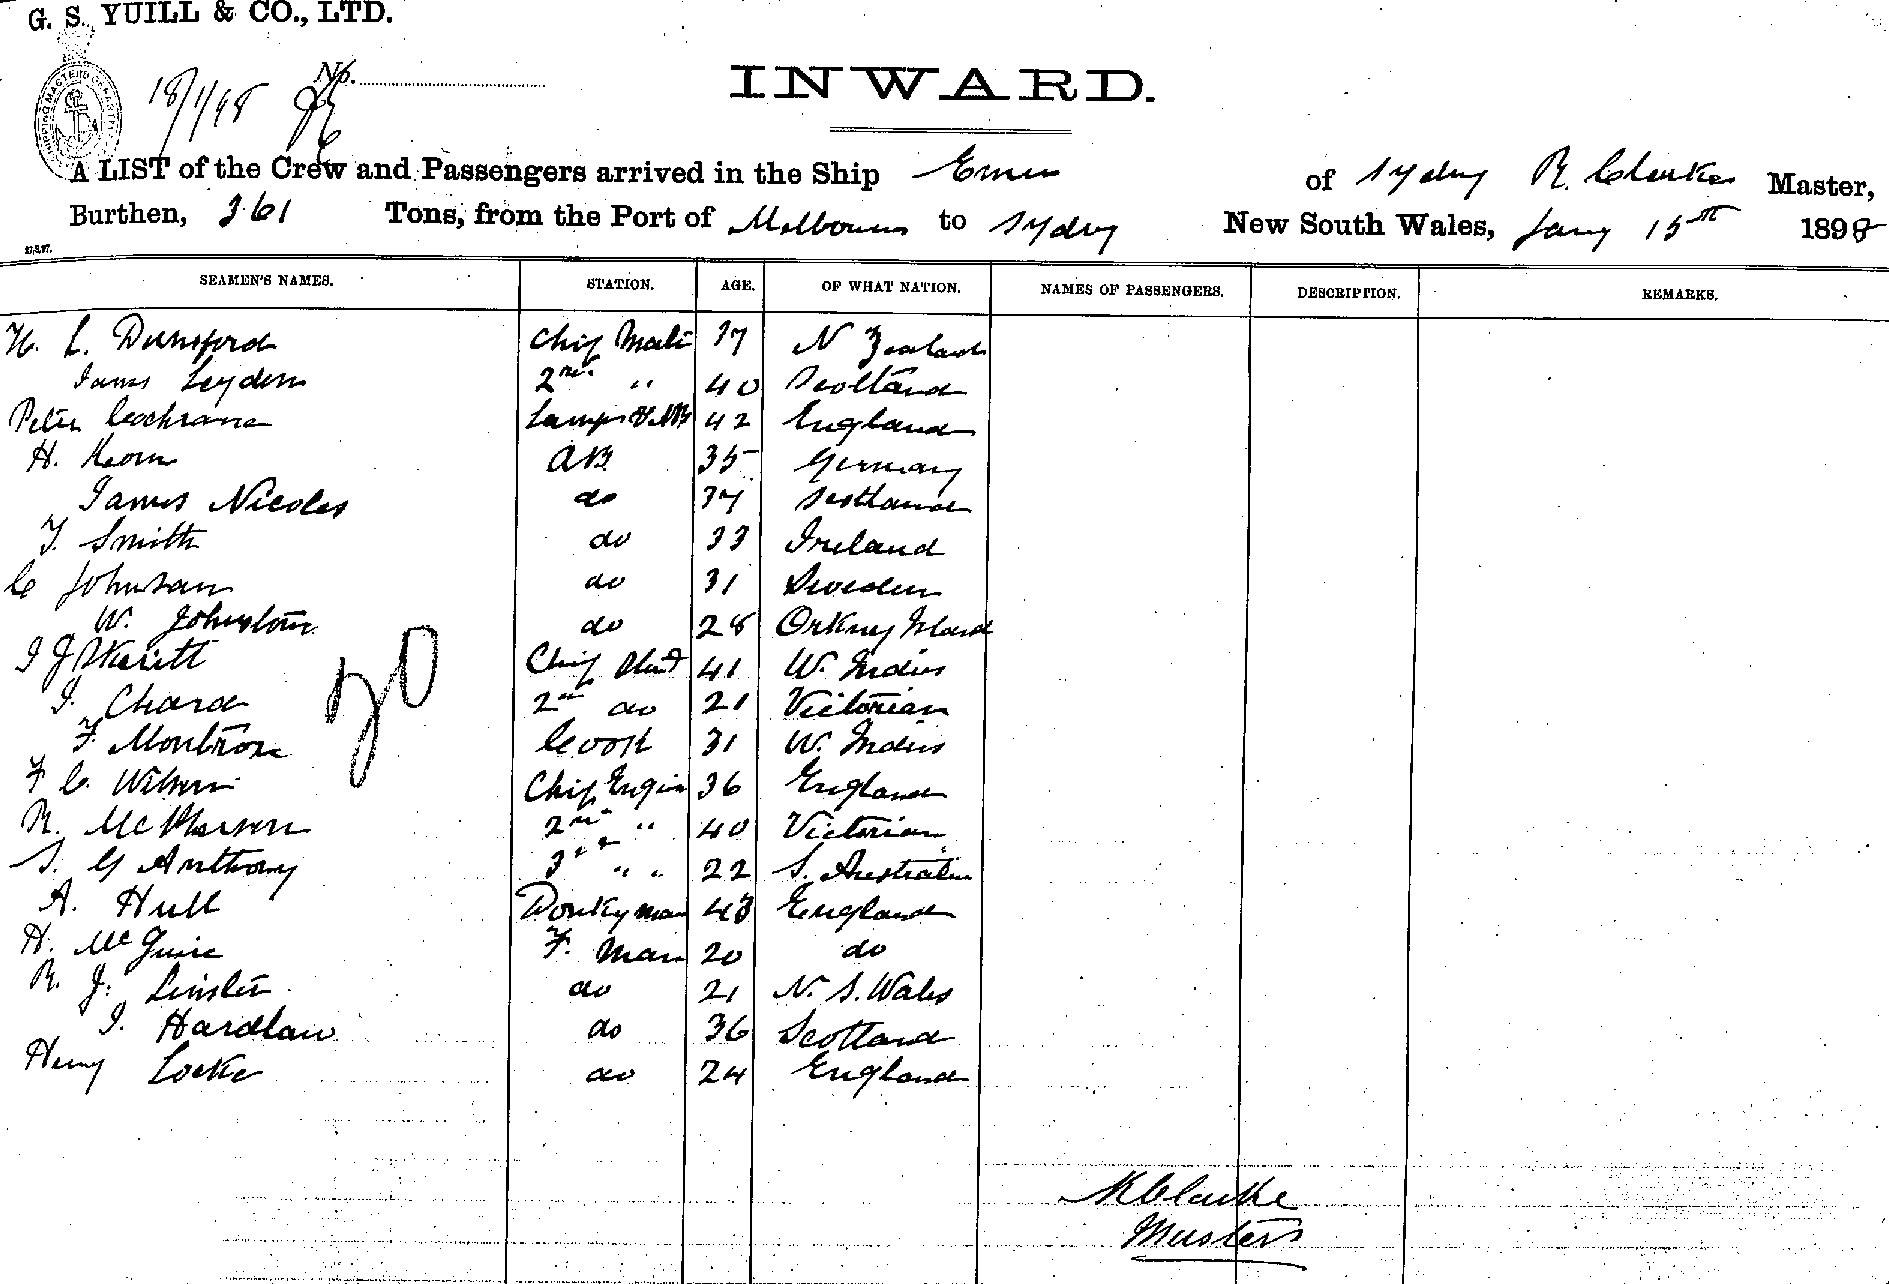 G. S. YUILL & CO., LTD.
18/1/98 No.
INWARD.
A LIST of the Crew and Passengers arrived in the Ship of Sydney R. Clarke Master,
Burthen, 361 Tons, from the Port of Melbourne to Sydney New South Wales, Jany 15th 1898
SEAMEN'S NAMES. STATION. AGE. OF WHAT NATION. NAMES OF PASSENGERS. DESCRIPTION. REMARKS.
H. L. Dunsford Chief Mate 37 N Zealand
James Leyden 2nd " 40 Scotland
Peter Cochrane Lamps & AB 42 England
H. Korn AB 35 Germany
James Nicoles do 37 Scotland
F. Smith do 33 Ireland
C Johnson do 31 Sweden
W. Johnston do 28 Orkney Island
J J Chief 41 W. Indies
J. Chard 2nd do 21 Victorian
F. Montrose Cook 31 W. Indies
20
F C. Wilson Chief Engin 36 England
R. McPherson 2nd " 40 Victorian
S. G Anthony 3rd " " 22 S. Australia
A. Hull Donkyman 43 England
H. McGuire F. Man 20 do
R. J. Linster do 21 N. S. Wales
J. Hardlaw do 36 Scotland
Henry Locke do 24 England
R Clarke
Master